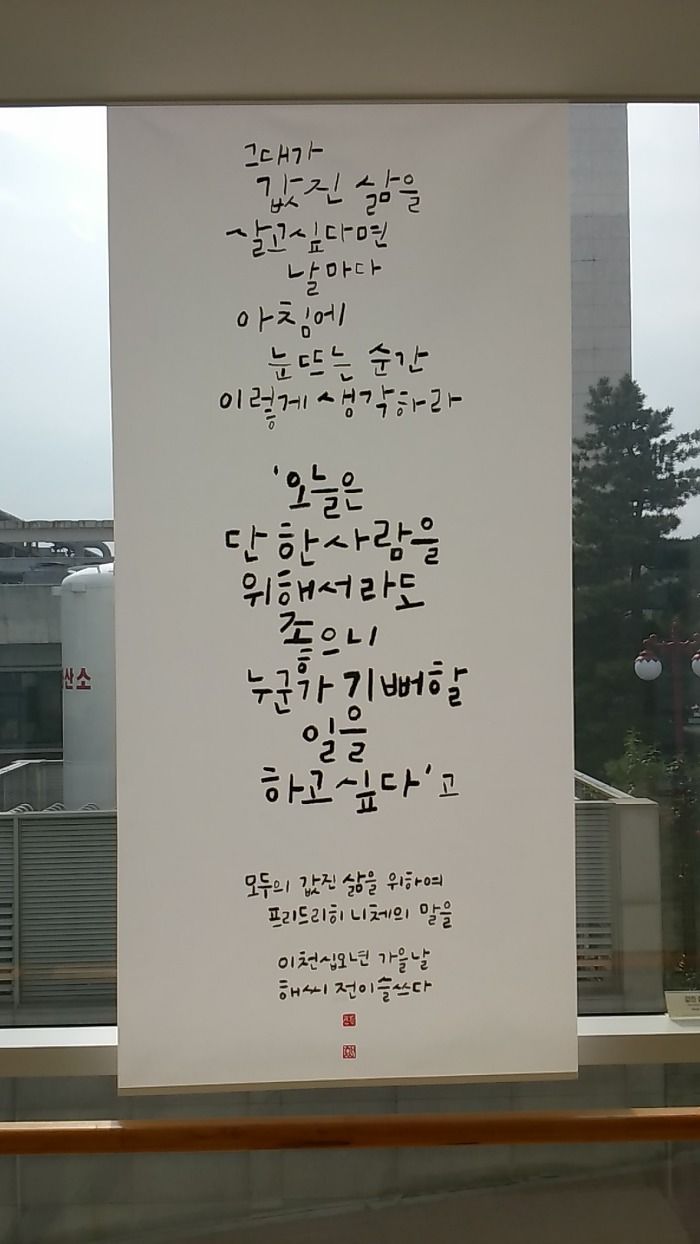 그대가
값진 삶을
살고싶다면
날마다
아침에
눈뜨는 순간
이렇게 생각하라
'오늘은
단 한사람을
위해서라도
좋으니
누군가 기뻐할
일을
하고싶다'고
모두의 값진 삶을 위하여
프리드리히 니체의 말을
이천십오년 가을날
해씨 전이슬쓰다
산소